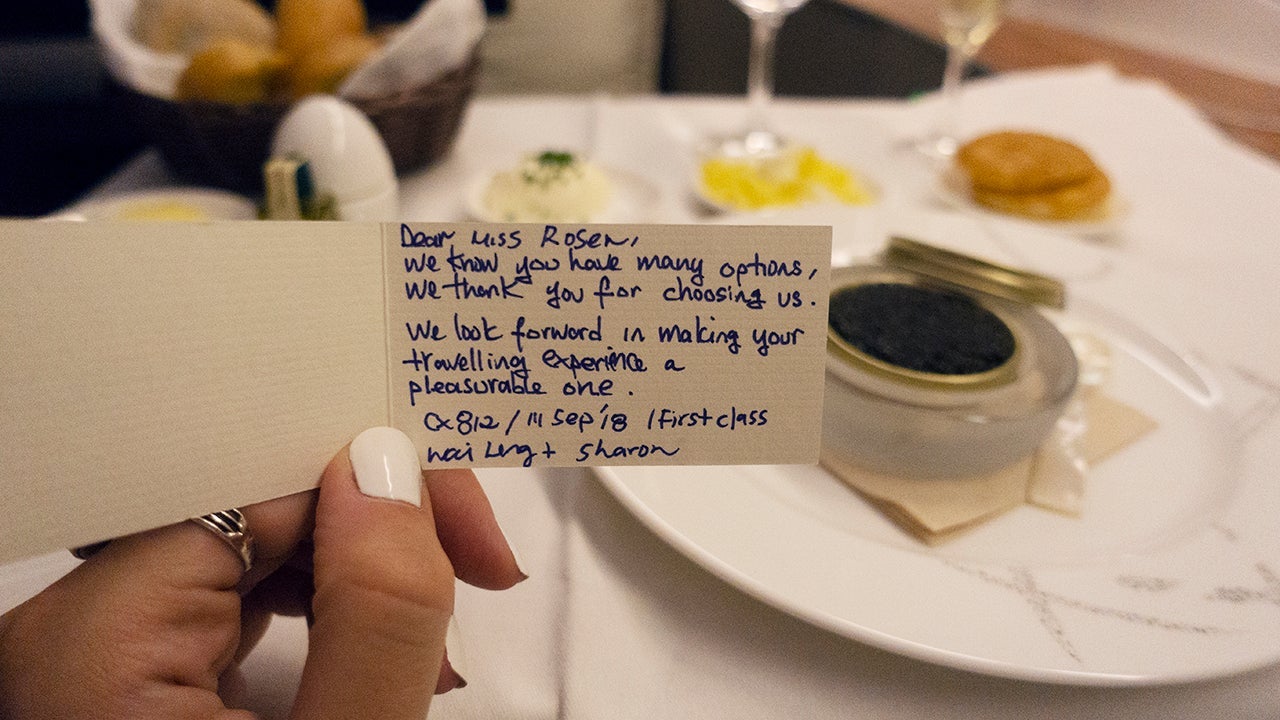 Dear Miss Rosen,
we know you have many options,
we thank you for choosing us.
We look forward in making your
travelling experince a
pleasurable one.
CX812 / 14 Sep '18 / First class
Wai Leng + Sharon